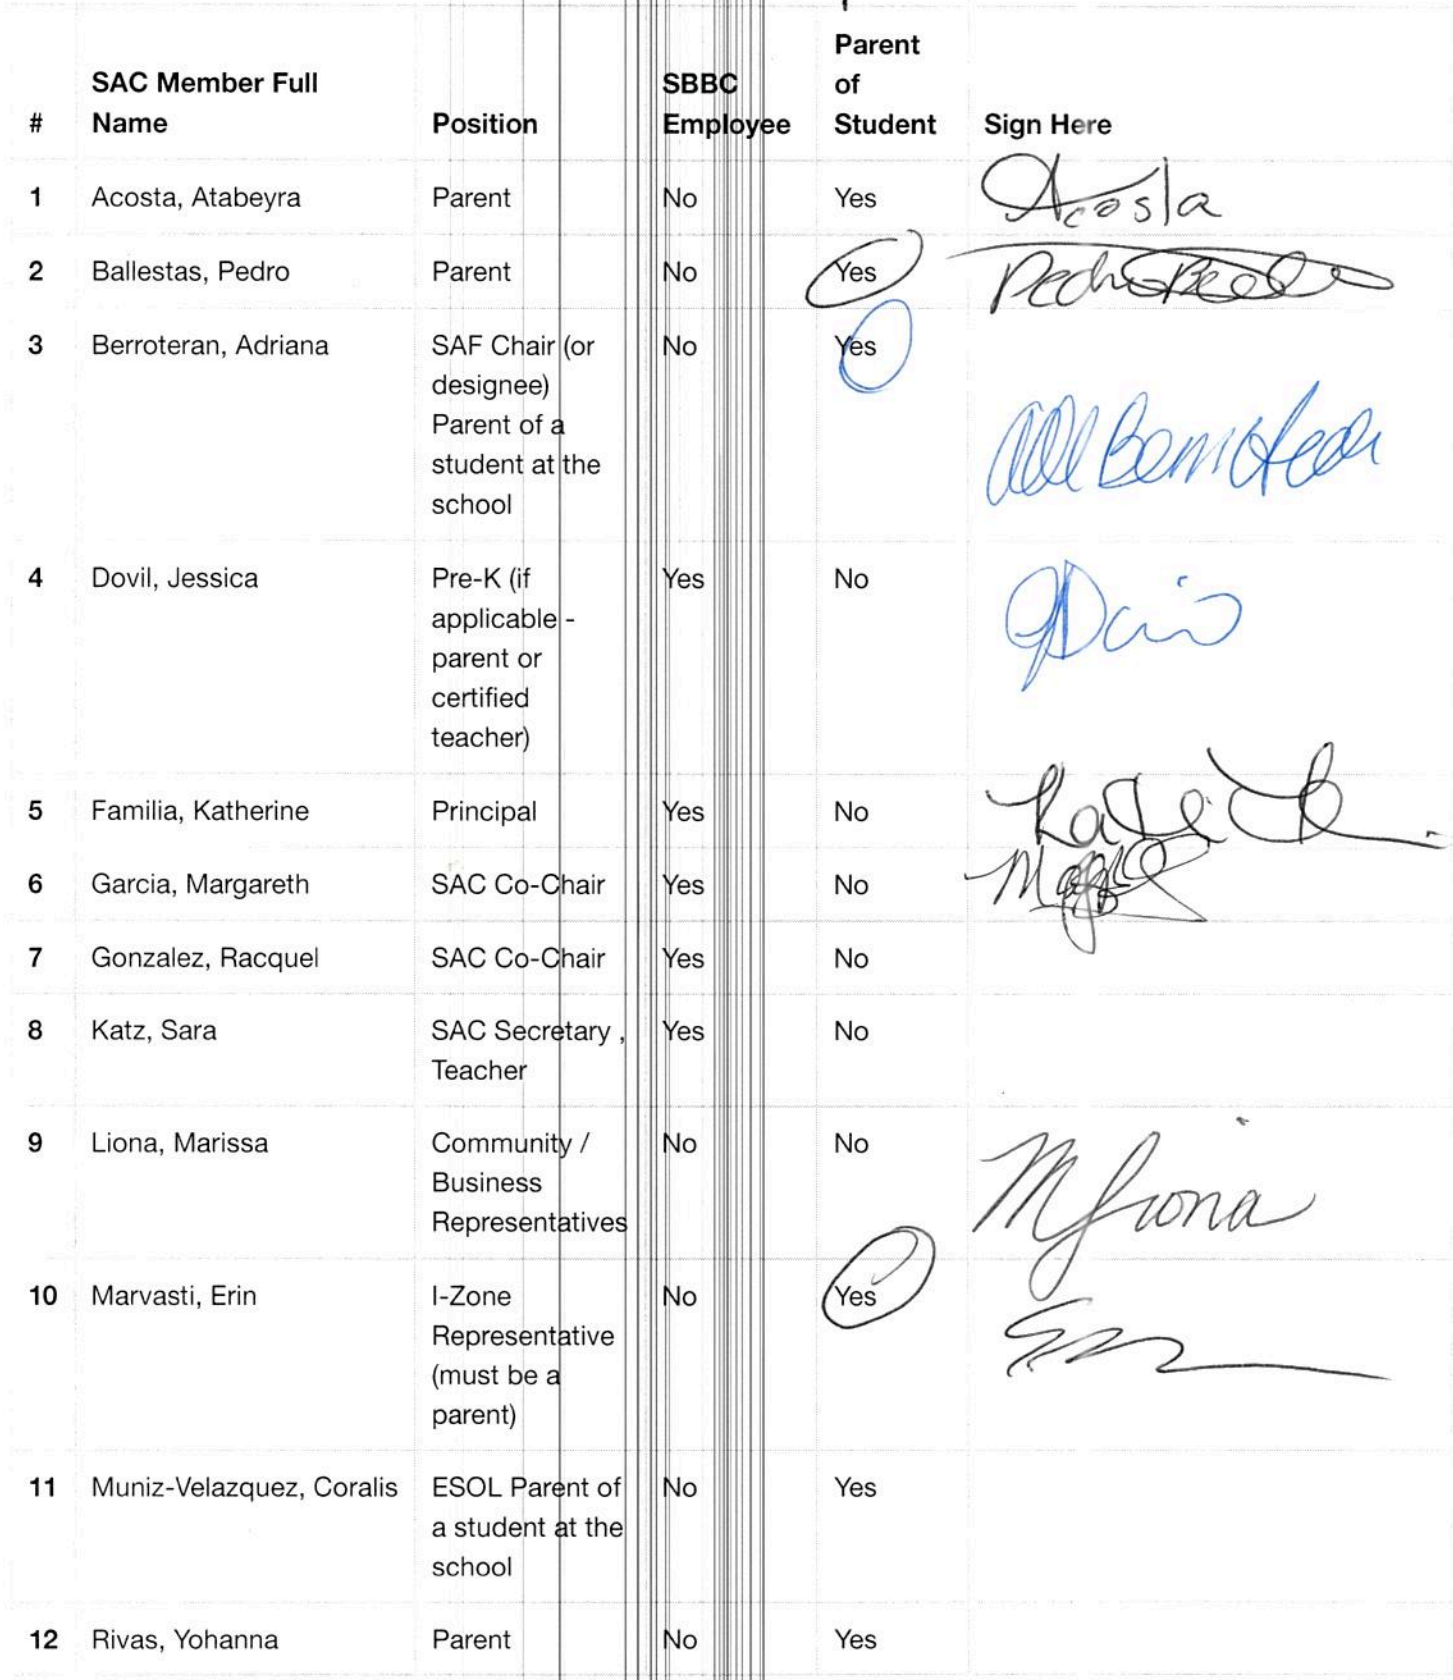 # SAC Member Full Name Position SBBC Employee Parent of Student Sign Here
1 Acosta, Atabeyra Parent No Yes Acosta
2 Ballestas, Pedro Parent No Yes Pedro
3 Berroteran, Adriana SAF Chair (or No Yes
designee)
Parent of a
student at the
school
4 Dovil, Jessica Pre-K (if Yes No
applicable -
parent or
certified
teacher)
5 Familia, Katherine Principal Yes No
6 Garcia, Margareth SAC Co-Chair Yes No
7 Gonzalez, Racquel SAC Co-Chair Yes No
8 Katz, Sara SAC Secretary , Yes No
Teacher
9 Liona, Marissa Community / No No
Business
Representatives MLiona
10 Marvasti, Erin I-Zone No Yes
Representative
(must be a
parent)
11 Muniz-Velazquez, Coralis ESOL Parent of No Yes
a student at the
school
12 Rivas, Yohanna Parent No Yes